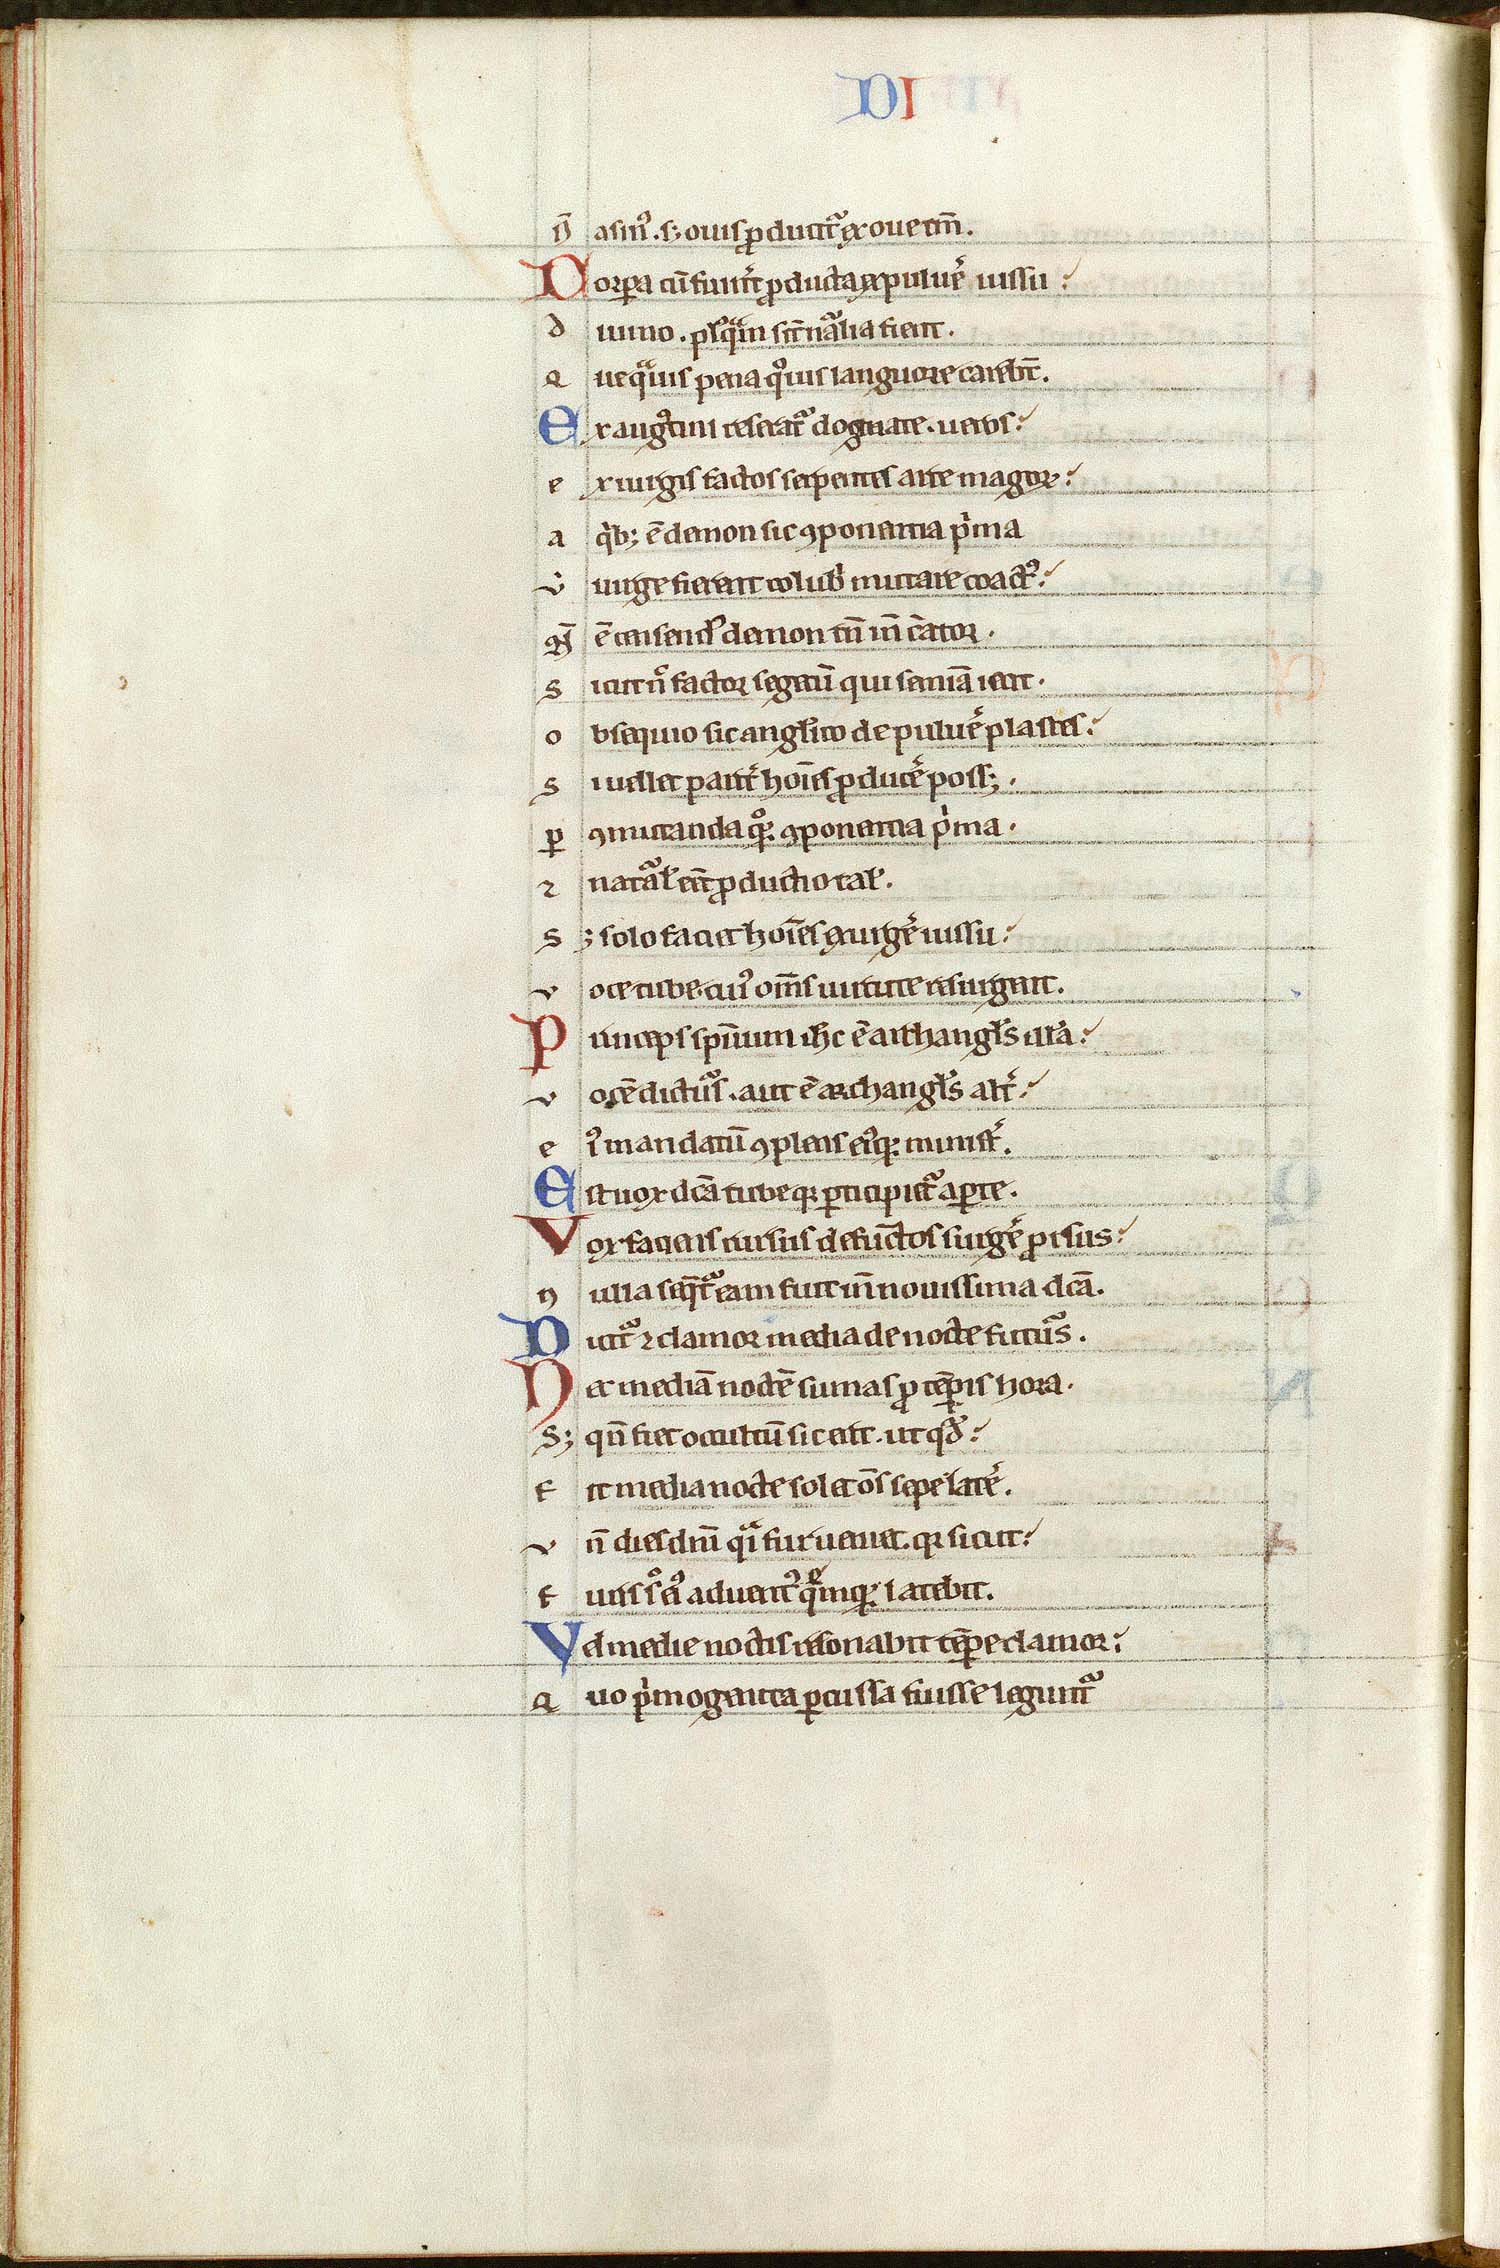 DI
n̄ asin⁹. sꝫ ouis ꝓducit᷑ ex oue tm̄.
Corꝑa cū fuerīt ꝓducta ex puluē iussu
diuino. pꝰqᵃm sic nᵃlia fient.
ueqᵃuis pena qͦuis languore carebt̄.
Ex augꝰtini reserat᷑ dogmate. uerbs
ex uirgis factos serpentes arte magoꝝ
a qͥbꝫ ē demon sic ꝯponentia pͥma
v̄ uirge fierent colubͥ mutare coact⁹
ē censend⁹ demon tn̄ in̄ creator.
sicut n̄ factor segetū qui semīa iecit.
obsequio sic angl̓ico de puluē plastes
si uellet parit̓ hoīes ꝓducē possꝫ.
ꝑ ꝯmutanda quoqꝫ ꝯponentia pͥma.
⁊ natᵃl̓ eēt ꝓductio tal̓.
sꝫ solo faciet hoīes exurgē iussu
voce tube. cui⁹ om̄s uirtute resurgent.
Princeps sp̄ituum ih̄c ē archangl̓s illa
vocē dictur⁹. aut ē archangl̓s alt̓
ei⁹ mandatū ꝯplens ei⁹qꝫ minist̓.
Est uox dc̄a tube qꝫ ꝑcipiet᷑ aꝑte.
Vox faciens rursus defūctos surgē ꝓrsus
nulla seqͣt᷑ eam fuit in̄ nouissima dc̄a.
Dicit᷑ ⁊ clamor media de nocte futur⁹.
Nec mediā noctē sumas ꝓ temꝑis hora.
Sꝫ qn̄ fiet occultū sic erit. ut qͦd
fit media nocte solet om̄s sepe latē.
vn̄ dies dn̄i qͣsi fur ueniet. qꝫ sicut
furis sͦ ei⁹ aduent⁹ quēnqꝫ latebit.
Vel medie noctis resonabit temꝑe clamor
quo pͥmogenita ꝑcussa fuisse legunt᷑